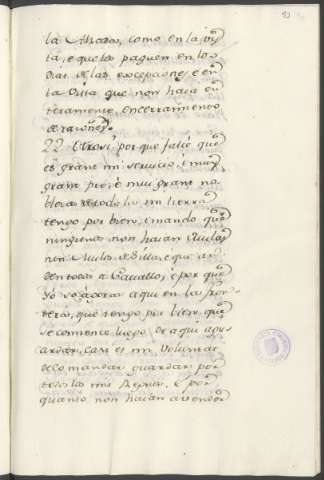 la Alzada, como en la vis
ta, e que los paguen en los
dias de las excepciones, e en
la Vista que non haia en
teramente, encerramiento
de razones.
22 Otrosi por que falle que
es grant mi servicio, i mui
grant pro, e mui grant no
bleza de toda la mi tierra
tengo por bien, i mando que
ningunos non haian Mulas
nin Mulos de Silla, e que an
den todos a Cavallo, e por que
Yo so agora aqui en la fron
tera, que tengo por bien, que
se comience luego de aqui a
ca es mi Voluntat
de lo mandar guardar por
todos los mis Regnos. E por
quanto non haian a vender